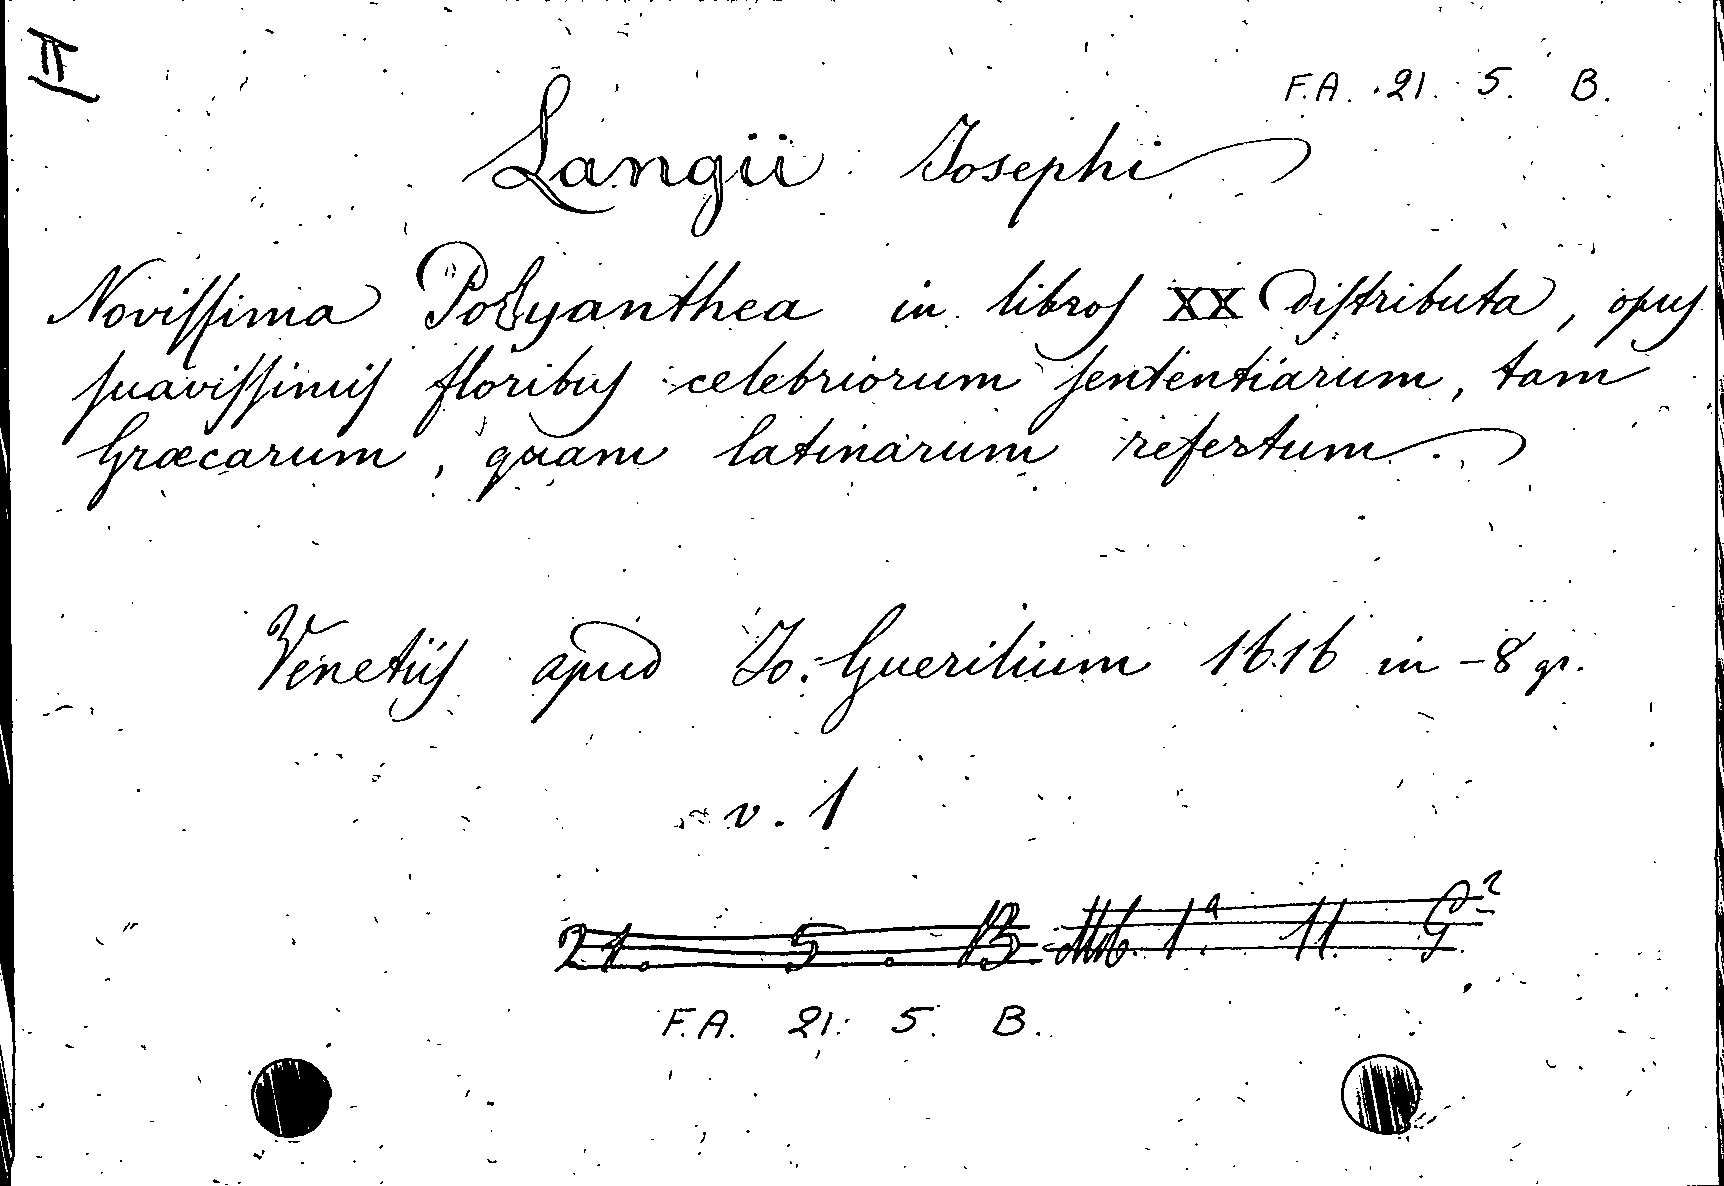 II
F.A. 21. 5. B.
Langii Josephi
Novissima Polyanthea in libros XX distributa, opus
suavissimis floribus celebriorum sententiarum, tam
Græcarum, quam latinarum refertum.
Venetiis apud Jo. Guerilium 1616 in-8 gr.
v. 1
21. 5. B 1ª 11
F.A. 21. 5. B.